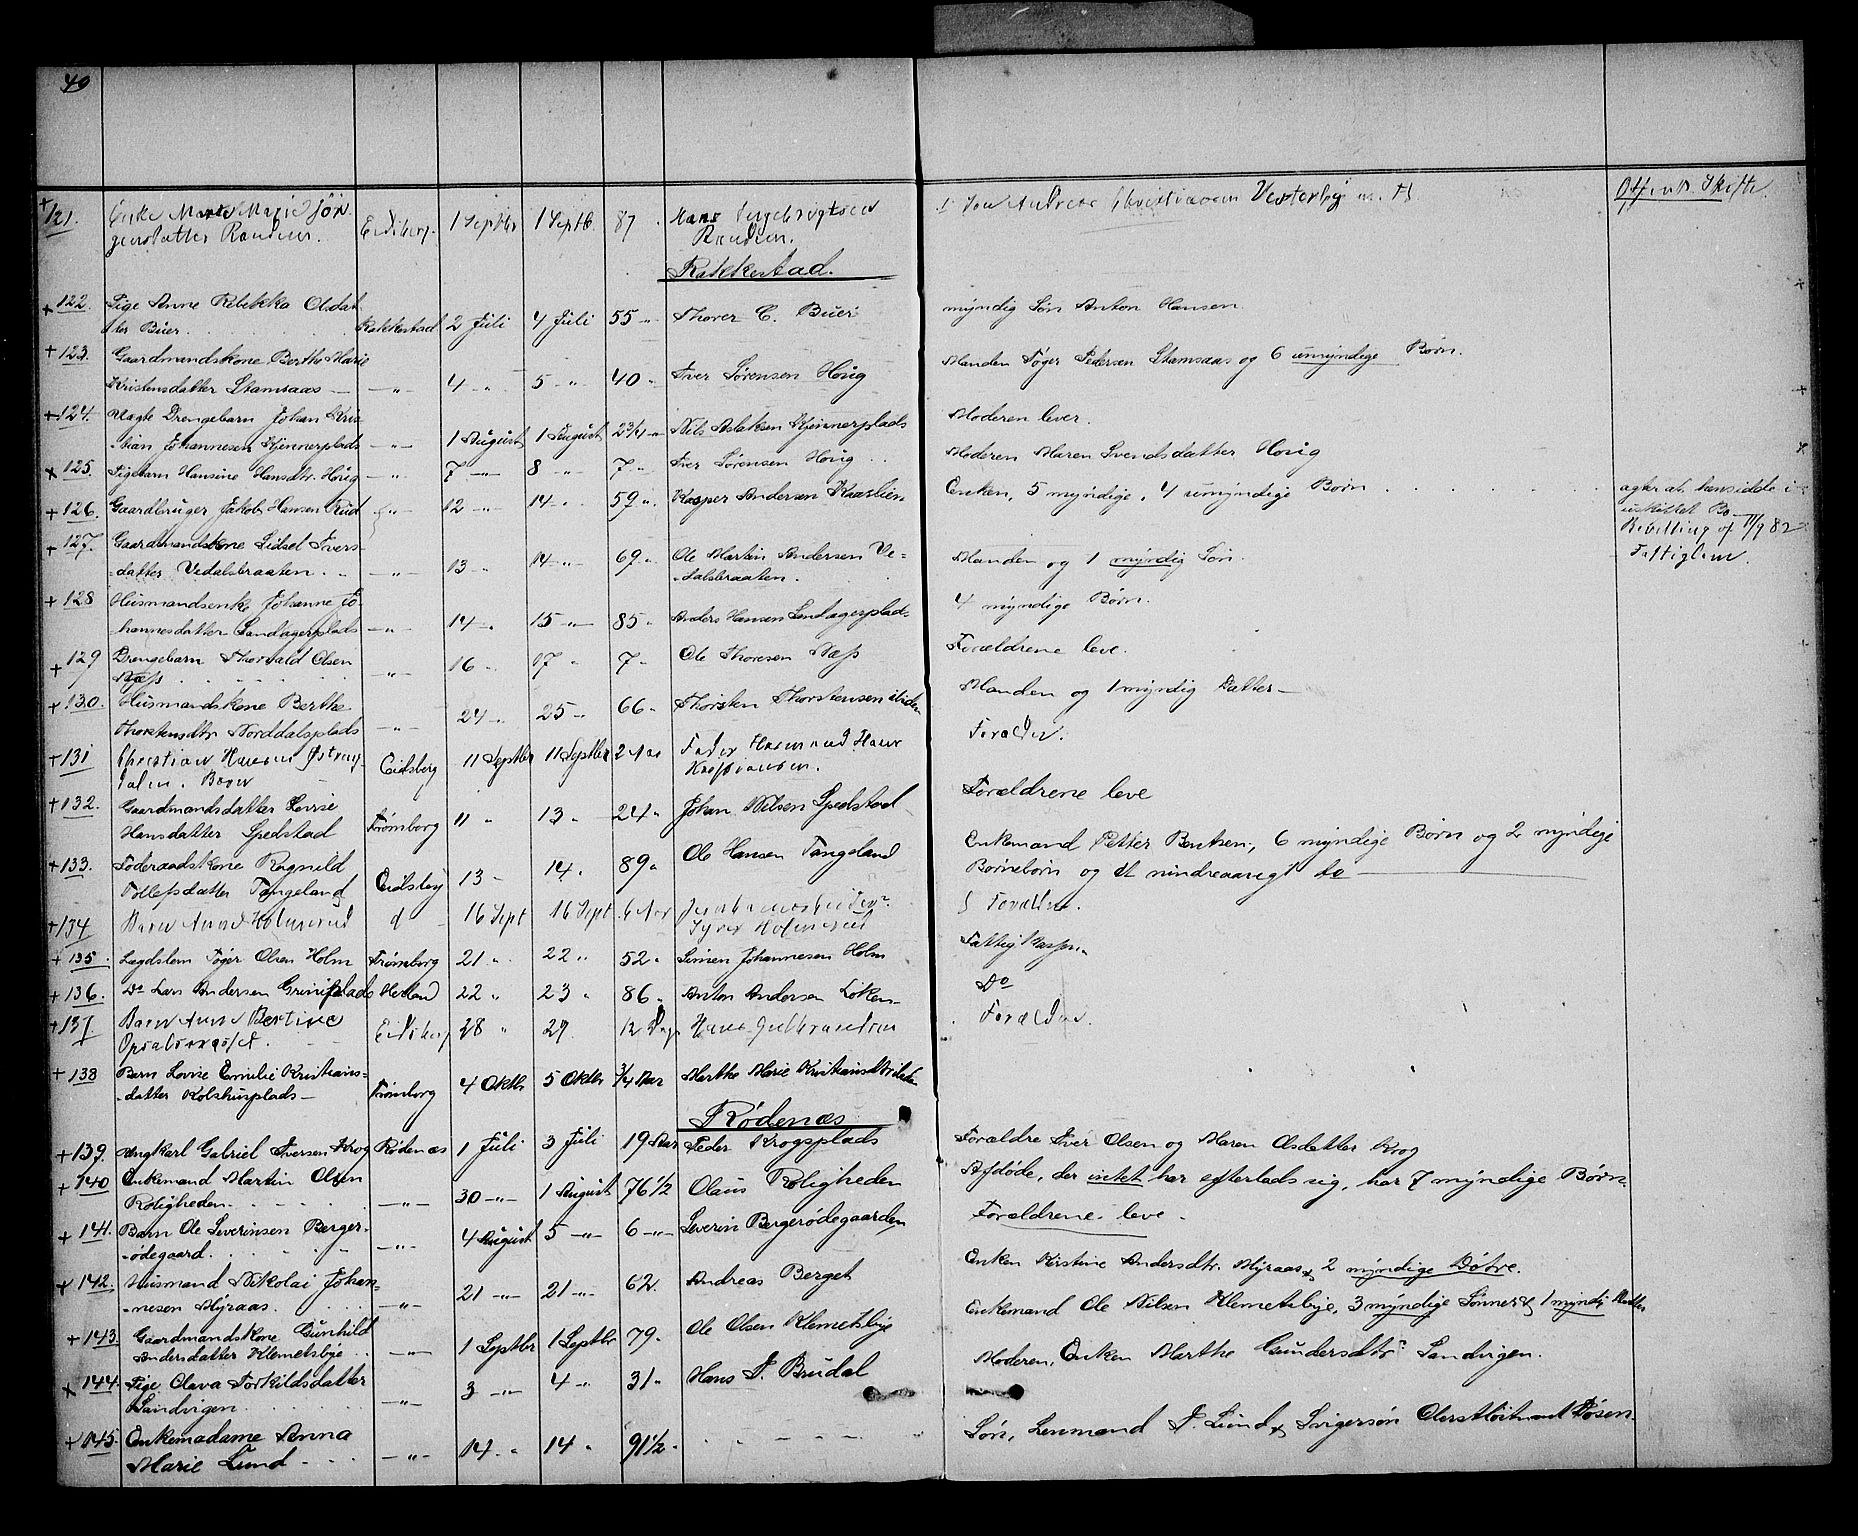 40
+ 121. Enke Marte Marie Jør- Eidsberg. 1 Septbr 1 Septb. 87 Hans Ingebrigtsen Andreas Christiansen Vesterby Offentl. Skifte
gensdatter
Rakkestad.
+ 122. Pige Anne Rebekka Olsdat- myndig Søn Anton Hansen.
ter Buer. Rakkestad 2 Juli 4 Juli 55 " Thorer C. Buer
+ 123. Gaardmandskone Berthe Marie Manden Tøger Pedersen Stamsaas og 6 umyndige Børn.
Kristensdatter Stamsaas — — " — 4 - " 5 - " 40 " Iver Sørensen Høug
+ 124. Uægte Drengebarn Johan Kris- Moderen lever.
-tian Johannesen Kjennerplads — " — 1 August 1 August 2 3/4 - " Nils Aslaksen Kjennerplads
+ 125. Pigebarn Hansine Hansdtr. Høug — " 7 - " - 8 - " - 7 " Iver Sørensen Høug Moderen Maren Svendsdatter Høug
+ 126. Gaardbruger Jakob Hansen Rud — " — 12 - " - 14 - " 59 " Kasper Andersen Kaaslien Enken, 5 myndige, 4 umyndige Børn agter at hensidde i
uskiftet Bo
Bevilling af 11/9 82
+ 127. Gaardmandskone Lidsel Ivers- Manden og 1 myndig Søn. Fattiglem.
-datter Vedalsbraaten. — " — 13 - " 14 - " 69 " Ole Martin Andersen Ve-
-dalsbraaten.
+ 128 Husmandsenke Johanne Jo- 4 myndige Børn.
hannesdatter Sandagerplads — " — 14 - " 15 - " - 85 " Anders Hansen Sandagerplads
+ 129 Drengebarn Thorvald Olsen Forældrene leve.
Næss — " — 16 " 17 " 7 " Ole Thoresen Næss
+ 130. Husmandskone Berthe Manden og 1 myndig Datter—
Thorstensdtr. Norddalsplads — " — 24 " 25 - " 66 " Thorsten Thorstensen
+ 131 Christian Hansen Eidsberg 11 Septbr 11 Septbr 2 Aar Fader Husmand Hans Forældre.
dalen. Barn Kristiansen.
+ 132. Gaardmandsdatter Lovise Trømborg 11 " 13 " 24 " Johan Nilsen Spedstad Forældrene leve
Hansdatter Spedstad
+ 133. Føderaadskone Ragnild Eidsberg 13 - 14 " 89 " Ole Hansen Tangeland Enkemand Petter Bentsen, 6 myndige Børn og 2 myndige
Tollefsdatter Tangeland Børnebørn og et mindreaarigt do —
+ 134 Barn d 16 Sept 16 Sept. 6 Aar Forældre.
+ 135. Lægdslem Tøger Olsen Holm Trømborg 21 " 22 " 52 " Simen Johannesen Holm Fattigkassen
+ 136. Do Lars Andersen Grinisplads Herland 22 " 23 " 86 " Anton Andersen Løken— Do
+ 137 Barn Anne Bertine Eidsberg 28 " 29. 12 Dage Hans Gulbrandsen Forældre.
+ 138 Barn Lovise Emilie Kristians- Trømborg 4 Oktbr 5 Oktbr 3/4 Aar Marthe Marie
-datter Kolshusplads—
Rødenæs
+ 139. Ungkarl Gabriel Iversen Krog Rødenæs 1 Juli 3 Juli 19 Aar Peder Krogsplads Forældre Iver Olsen og Maren Olsdatter Krog
+ 140 Enkemand Martin Olsen — " — 30 - " - 1 August 76 1/2 Olaus Roligheden Afdøde, der intet har efterlads sig, har 7 myndige Børn
Roligheden.
+ 141. Barn Ole Severinsen Berger- — " — 4 August 5 - " - 6 - " - Severin Bergerødegaarden Forældrene leve -
-ødegaard.
+ 142. Husmand Nikolai Johan- — " — 21 - " - 21 - " - 62. Andreas Berget Enken Kirstine Andersdtr. Myraas & 2 myndige Døtre.
-nesen Myraas.
+ 143. Gaardmandskone Gunhild — " — 1 Septbr 1 Septbr 79. Ole Olsen Klemetsbye Enkemand Ole Nilsen Klemetsbye, 3 myndige Sønner & 1 myndig Datter
Andersdatter Klemetsbye
+ 144. Pige Olava Torkildsdatter — " — 3 - " - 4 - " - 31 " Hans P. Brudal Moderen, Enken Marthe Gundersdtr. Sandvigen.
Sandvigen.
+ 145. Enkemadame Anna — " — 14 " 14 " 91 1/2 " Søn, Lensmand P. Lund & Svigersøn Oberstløitnant Røsen.
Marie Lund